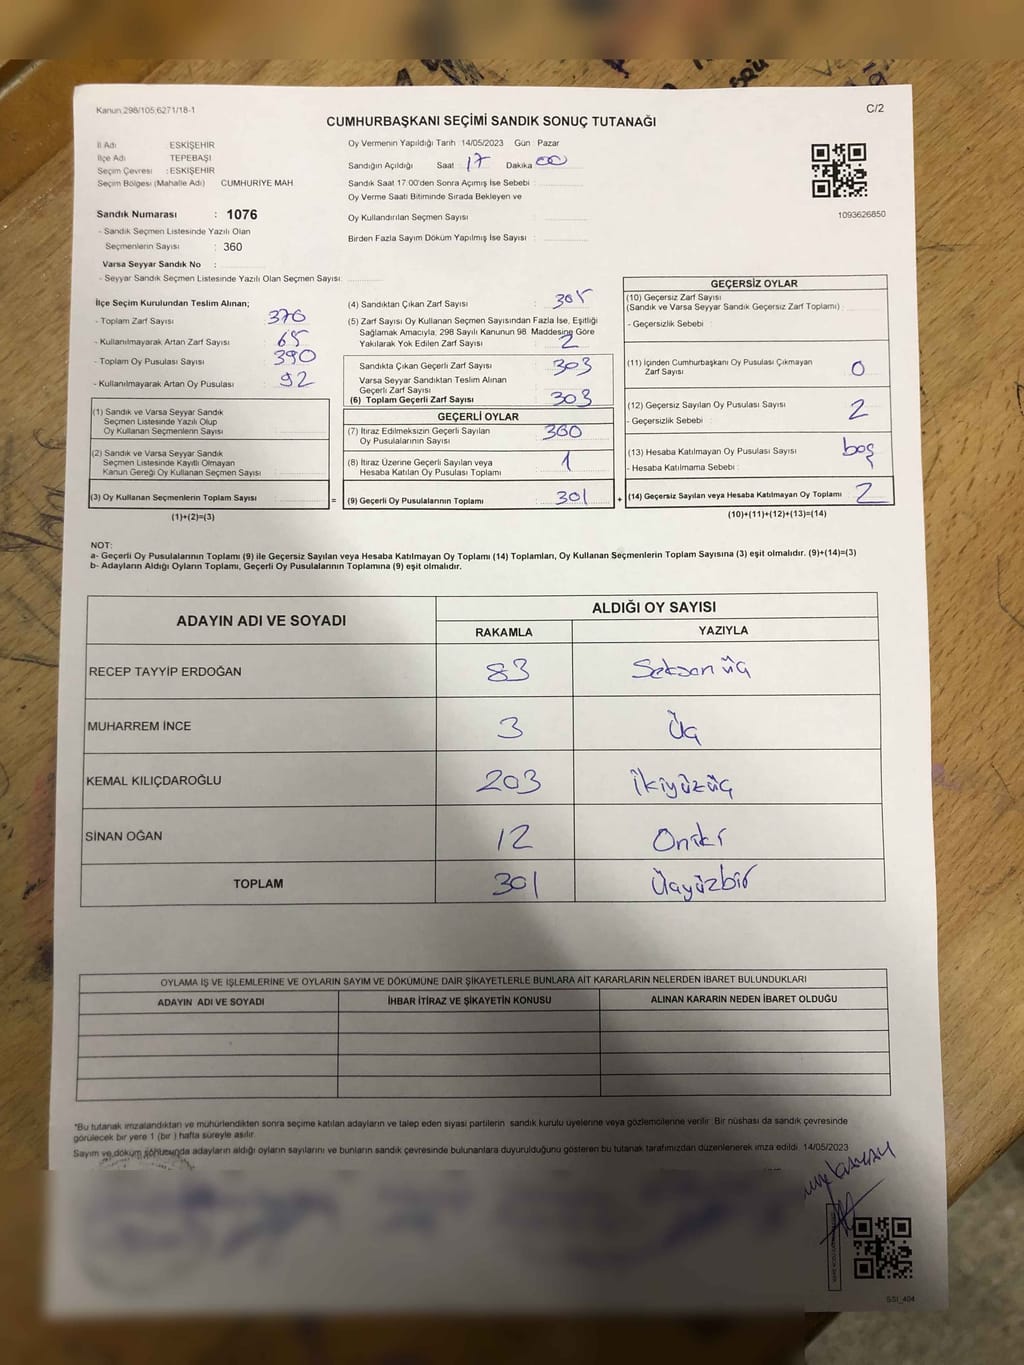 Kanun 298/105,6271/18-1
C/2
CUMHURBAŞKANI SEÇİMİ SANDIK SONUÇ TUTANAĞI
İl Adı : ESKİŞEHİR
İlçe Adı : TEPEBAŞI
Seçim Çevresi : ESKİŞEHİR
Seçim Bölgesi (Mahalle Adı) CUMHURİYE MAH
Sandık Numarası : 1076
- Sandık Seçmen Listesinde Yazılı Olan
Seçmenlerin Sayısı : 360
Varsa Seyyar Sandık No :
- Seyyar Sandık Seçmen Listesinde Yazılı Olan Seçmen Sayısı:
Oy Vermenin Yapıldığı Tarih :14/05/2023 Gün : Pazar
Sandığın Açıldığı Saat : 17 Dakika 00
Sandık Saat 17:00'den Sonra Açımış İse Sebebi :
Oy Verme Saati Bitiminde Sırada Bekleyen ve
Oy Kullandırılan Seçmen Sayısı :
Birden Fazla Sayım Döküm Yapılmış İse Sayısı :
1093626850
İlçe Seçim Kurulundan Teslim Alınan;
- Toplam Zarf Sayısı : 370
- Kullanılmayarak Artan Zarf Sayısı : 65
- Toplam Oy Pusulası Sayısı : 390
- Kullanılmayarak Artan Oy Pusulası : 92
(1) Sandık ve Varsa Seyyar Sandık
Seçmen Listesinde Yazılı Olup
Oy Kullanan Seçmenlerin Sayısı :
(2) Sandık ve Varsa Seyyar Sandık
Seçmen Listesinde Kayıtlı Olmayan
Kanun Gereği Oy Kullanan Seçmen Sayısı :
(3) Oy Kullanan Seçmenlerin Toplam Sayısı :
=
(1)+(2)=(3)
(4) Sandıktan Çıkan Zarf Sayısı : 305
(5) Zarf Sayısı Oy Kullanan Seçmen Sayısından Fazla İse, Eşitliği
Sağlamak Amacıyla, 298 Sayılı Kanunun 98. Maddesine Göre
Yakılarak Yok Edilen Zarf Sayısı : 2
Sandıkta Çıkan Geçerli Zarf Sayısı : 303
Varsa Seyyar Sandıktan Teslim Alınan
Geçerli Zarf Sayısı :
(6) Toplam Geçerli Zarf Sayısı : 303
GEÇERLİ OYLAR
(7) İtiraz Edilmeksizin Geçerli Sayılan
Oy Pusulalarının Sayısı : 300
(8) İtiraz Üzerine Geçerli Sayılan veya
Hesaba Katılan Oy Pusulası Toplamı : 1
(9) Geçerli Oy Pusulalarının Toplamı : 301
+
GEÇERSİZ OYLAR
(10) Geçersiz Zarf Sayısı
(Sandık ve Varsa Seyyar Sandık Geçersiz Zarf Toplamı) :
- Geçersizlik Sebebi :
(11) İçinden Cumhurbaşkanı Oy Pusulası Çıkmayan
Zarf Sayısı : 0
(12) Geçersiz Sayılan Oy Pusulası Sayısı : 2
- Geçersizlik Sebebi :
(13) Hesaba Katılmayan Oy Pusulası Sayısı : boş
- Hesaba Katılmama Sebebi :
(14) Geçersiz Sayılan veya Hesaba Katılmayan Oy Toplamı : 2
(10)+(11)+(12)+(13)=(14)
NOT:
a- Geçerli Oy Pusulalarının Toplamı (9) ile Geçersiz Sayılan veya Hesaba Katılmayan Oy Toplamı (14) Toplamları, Oy Kullanan Seçmenlerin Toplam Sayısına (3) eşit olmalıdır. (9)+(14)=(3)
b- Adayların Aldığı Oyların Toplamı, Geçerli Oy Pusulalarının Toplamına (9) eşit olmalıdır.
ADAYIN ADI VE SOYADI
ALDIĞI OY SAYISI
RAKAMLA YAZIYLA
RECEP TAYYİP ERDOĞAN 83 Seksen üç
MUHARREM İNCE 3 Üç
KEMAL KILIÇDAROĞLU 203 İkiyüzüç
SİNAN OĞAN 12 Oniki
TOPLAM 301 Üçyüzbir
OYLAMA İŞ VE İŞLEMLERİNE VE OYLARIN SAYIM VE DÖKÜMÜNE DAİR ŞİKAYETLERLE BUNLARA AİT KARARLARIN NELERDEN İBARET BULUNDUKLARI
ADAYIN ADI VE SOYADI İHBAR İTİRAZ VE ŞİKAYETİN KONUSU ALINAN KARARIN NEDEN İBARET OLDUĞU
*Bu tutanak imzalandıktan ve mühürlendikten sonra seçime katılan adayların ve talep eden siyasi partilerin sandık kurulu üyelerine veya gözlemcilerine verilir. Bir nüshası da sandık çevresinde
görülecek bir yere 1 (bir ) hafta süreyle asılır.
Sayım ve döküm sonucunda adayların aldığı oyların sayılarını ve bunların sandık çevresinde bulunanlara duyurulduğunu gösteren bu tutanak tarafımızdan düzenlenerek imza edildi. 14/05/2023
SSI_404